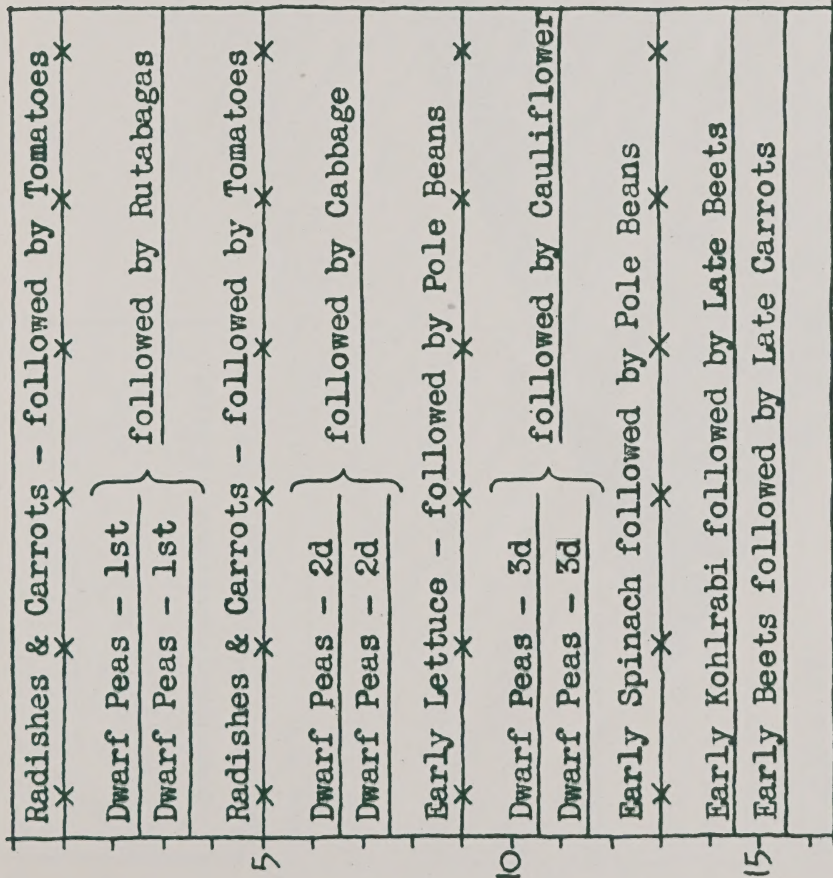 Radishes & Carrots - followed by Tomatoes
Dwarf Peas - 1st
Dwarf Peas - 1st
followed by Rutabagas
Radishes & Carrots - followed by Tomatoes
5
Dwarf Peas - 2d
Dwarf Peas - 2d
followed by Cabbage
Early Lettuce - followed by Pole Beans
10
Dwarf Peas - 3d
Dwarf Peas - 3d
followed by Cauliflower
Early Spinach followed by Pole Beans
Early Kohlrabi followed by Late Beets
15
Early Beets followed by Late Carrots